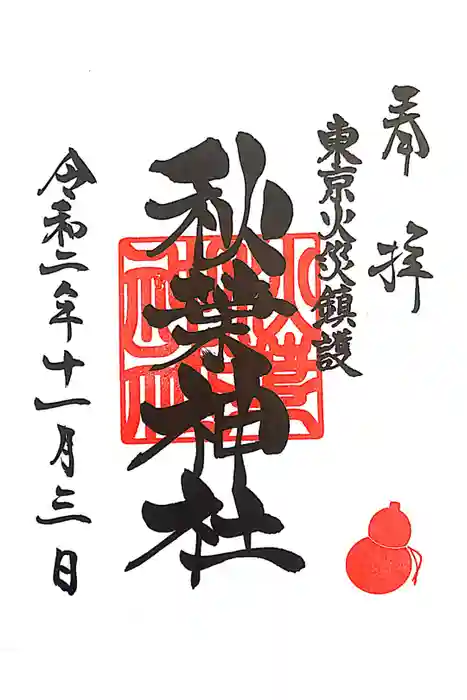 奉拝
東京火災鎮護
秋葉神社
令和二年十一月三日